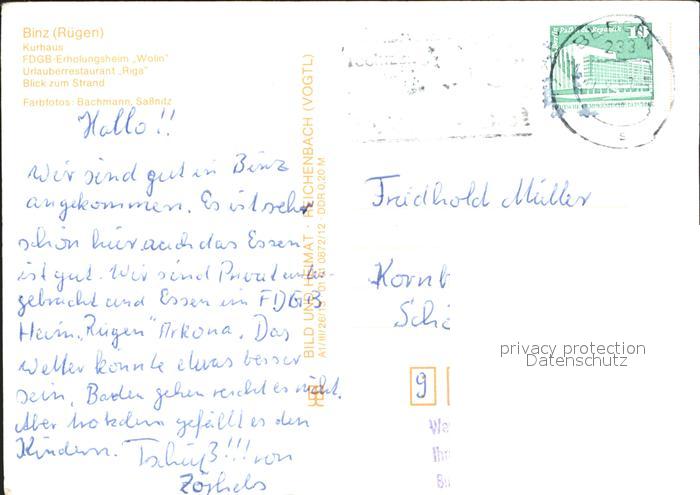 Binz (Rügen)
Kurhaus
FDGB-Erholungsheim „Wolin"
Urlauberrestaurant „Riga"
Blick zum Strand
Farbfotos: Bachmann, Saßnitz
Hallo!!
Wir sind gut in Binz
angekommen. Es ist sehr
schön hier auch das Essen
ist gut. Wir sind Privat unter
gebracht und Essen im FDGB
Heim „Rügen" Arkona. Das
Wetter könnte etwas besser
sein, Baden gehen reicht es nicht.
Aber trotzdem gefällt es den
Kindern. Tschüß!!! von
BILD UND HEIMAT · REICHENBACH (VOGTL)
A1/III/26/13 01 01 0672/12 DDR 0,20 M
10
BERGEN
233
s
Friedhold Müller
Kornb
Sch
privacy protection
Datenschutz
9
We
Ihr